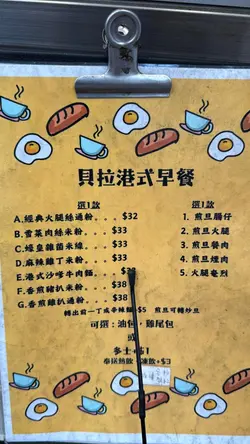 貝拉港式早餐
選1款
A.經典火腿絲通粉...$32
B.雪菜肉絲米粉...$33
C.蠔皇雜菌米線...$33
D.麻辣雞丁米粉...$33
E.港式沙嗲牛肉麵
F.香煎豬扒米粉...$38
G.香煎雞扒通粉...$38
選1款
1. 煎旦腸仔
2. 煎旦火腿
3. 煎旦餐肉
4. 煎旦煙肉
5. 火腿奄烈
轉出前一丁或辛辣麵+$5 煎旦可轉炒旦
可選:油包,雞尾包
或
多士+$1
奉送熱飲,凍飲+$3